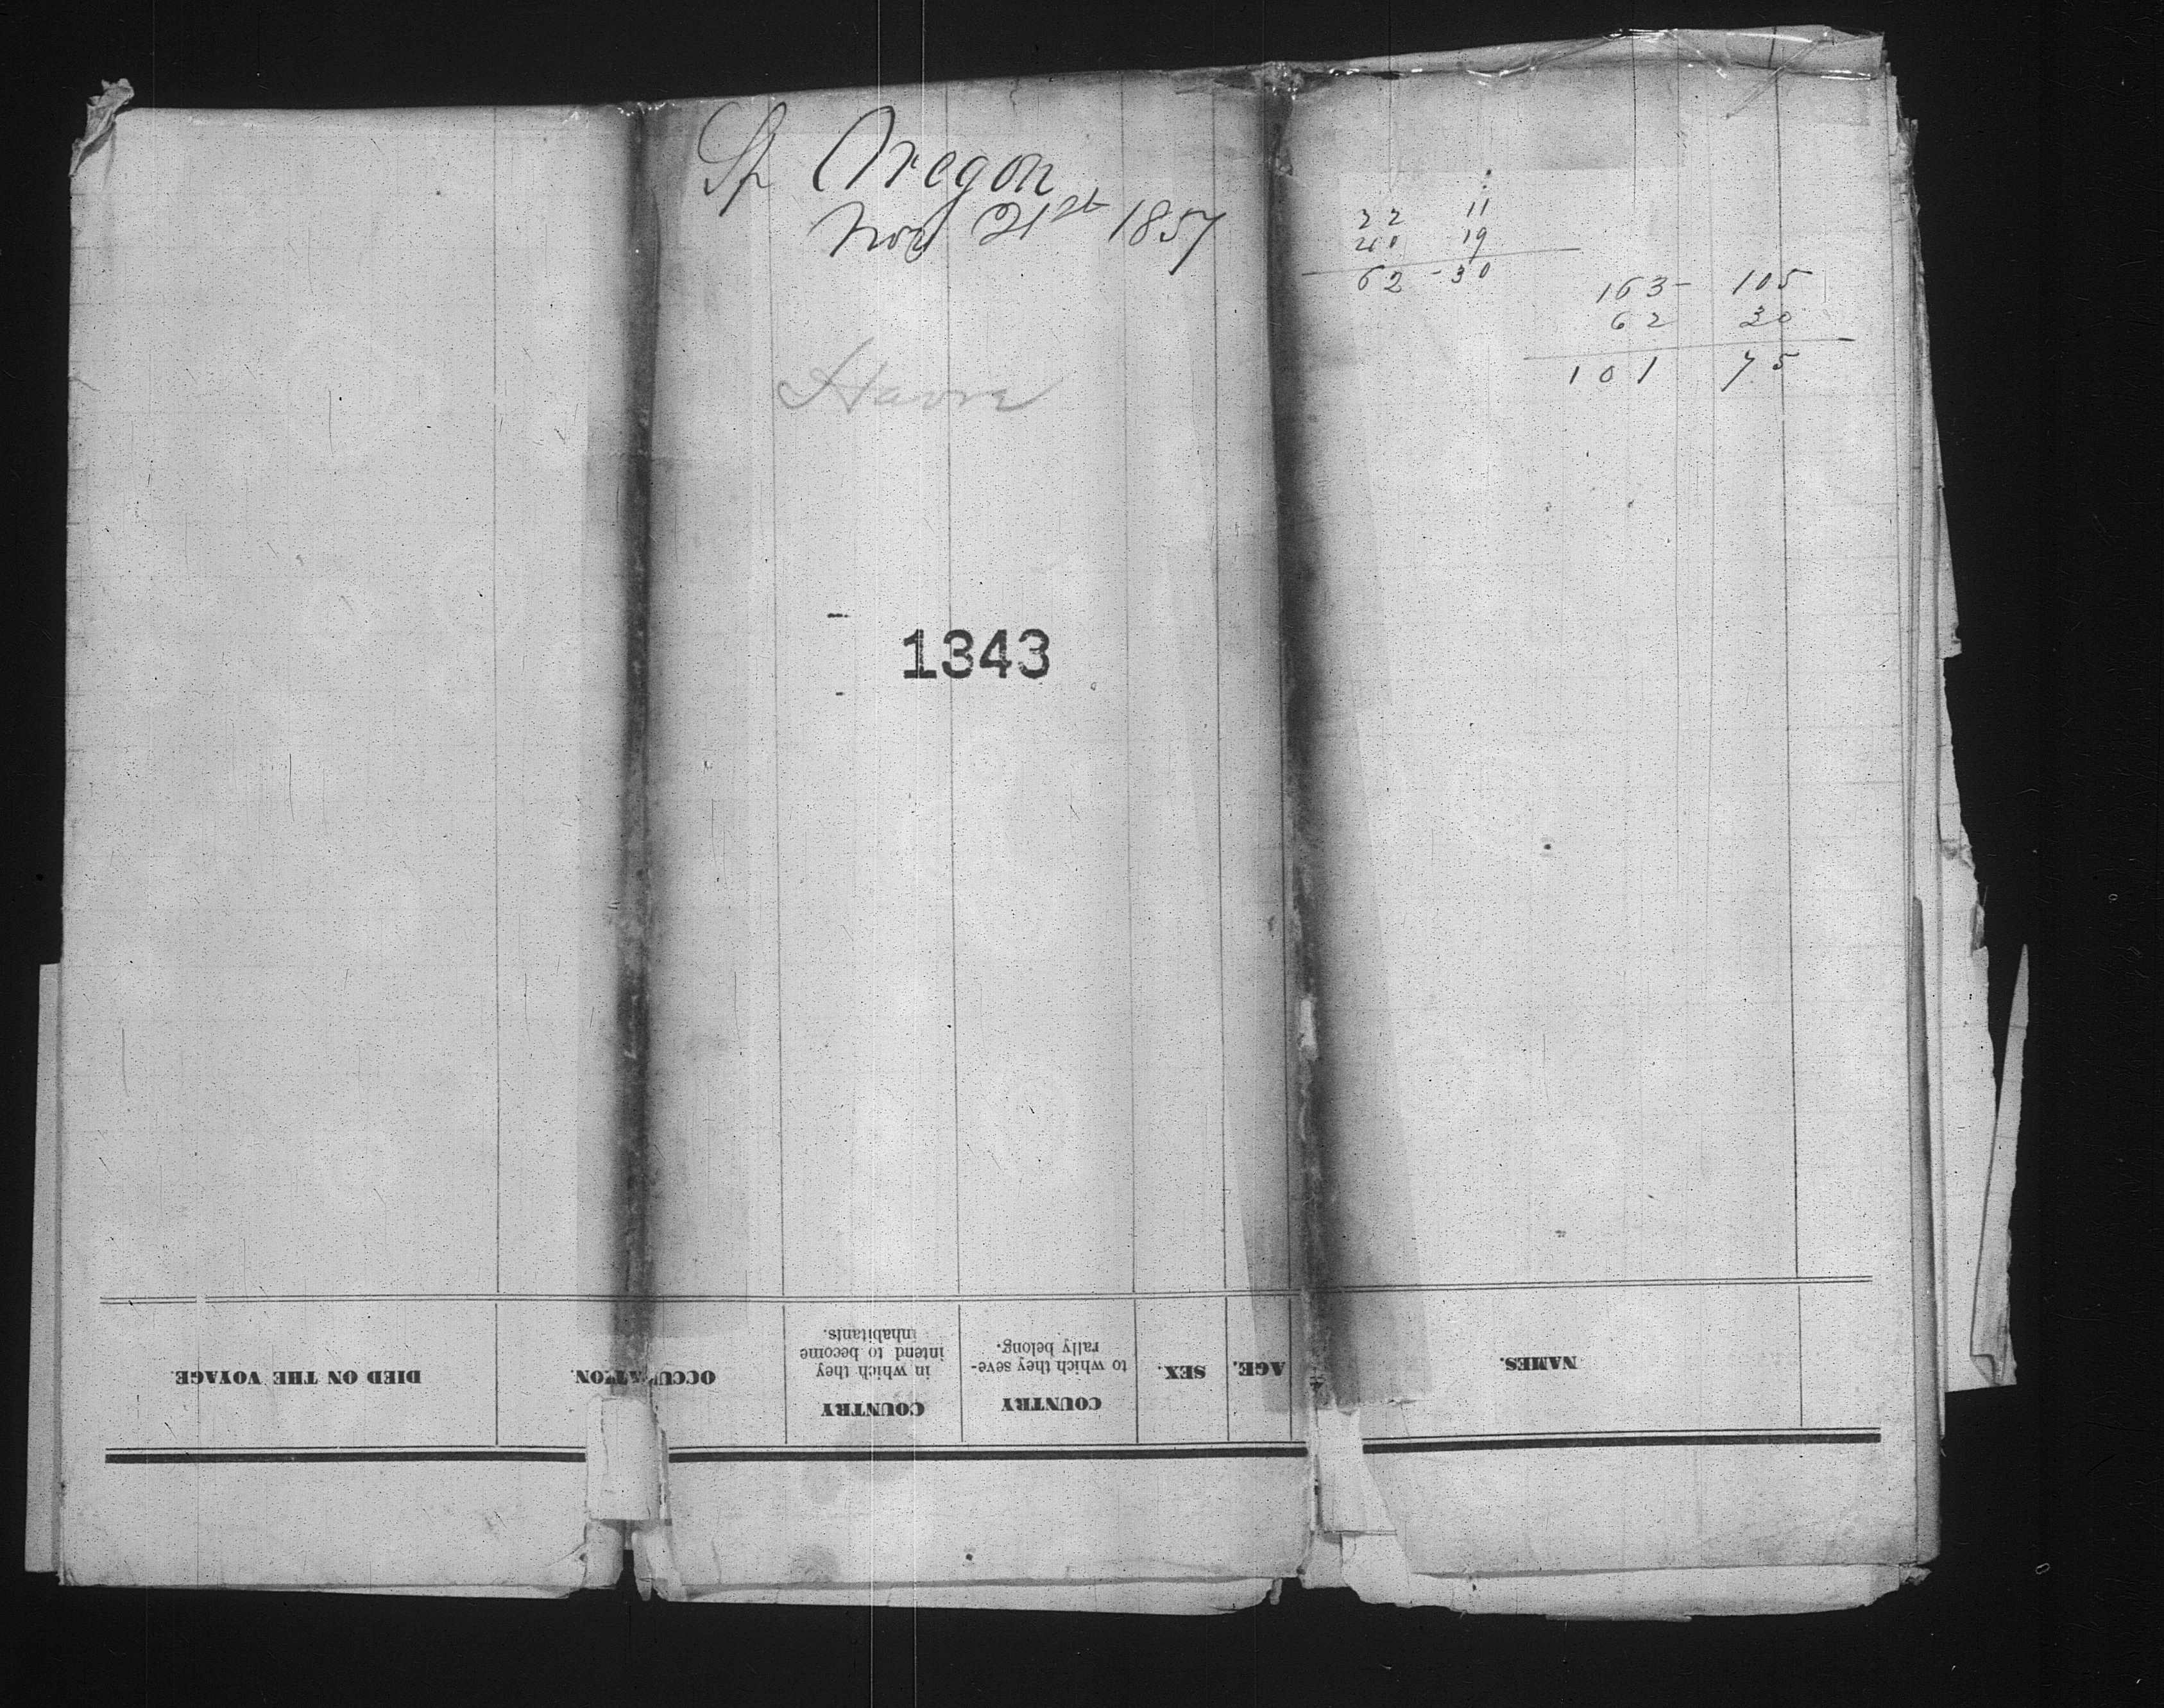 Sh Oregon
Nov 21st 1857
Havre
1343
22 11
40 19
62 - 30
163 - 105
62 30
101 75
NAMES.
AGE.
SEX.
COUNTRY
to which they seve-
rally belong.
COUNTRY
in which they
intend to become
inhabitants.
OCCUPATION.
DIED ON THE VOYAGE.